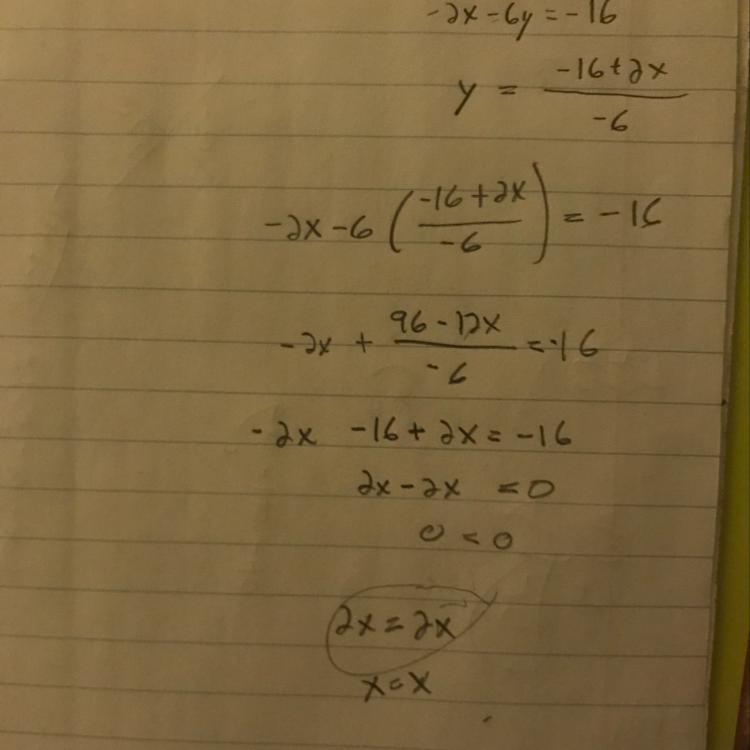 -2x-6y=-16
y = \frac{-16+2x}{-6}
-2x-6(\frac{-16+2x}{-6})=-16
-2x+\frac{96-12x}{-6}=-16
-2x -16+2x=-16
2x-2x =0
0=0
2x=2x
x=x